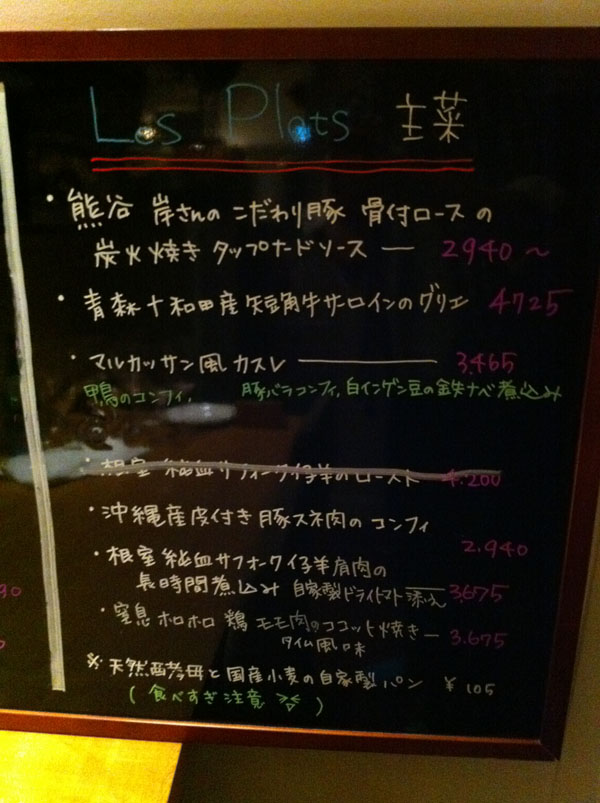 Les Plats 主菜
・熊谷 岸さんの こだわり豚 骨付ロースの
炭火焼き タップナードソース ー 2940〜
・青森十和田産短角牛サーロインのグリエ 4725
・マルカッサン風カスレ ー 3.465
鴨のコンフィ, 豚バラコンフィ, 白インゲン豆の鉄ナベ煮込み
・根室 純血サフォーク仔羊のロースト 4.200
・沖縄産皮付き豚スネ肉のコンフィ
2.940
・根室純血サフォーク仔羊肩肉の
長時間煮込み 自家製ドライトマト添え 3.675
・窒息ホロホロ鶏モモ肉のココット焼き ー 3.675
タイム風味
※ 天然酵母と国産小麦の自家製パン ¥105
( 食べすぎ注意 )